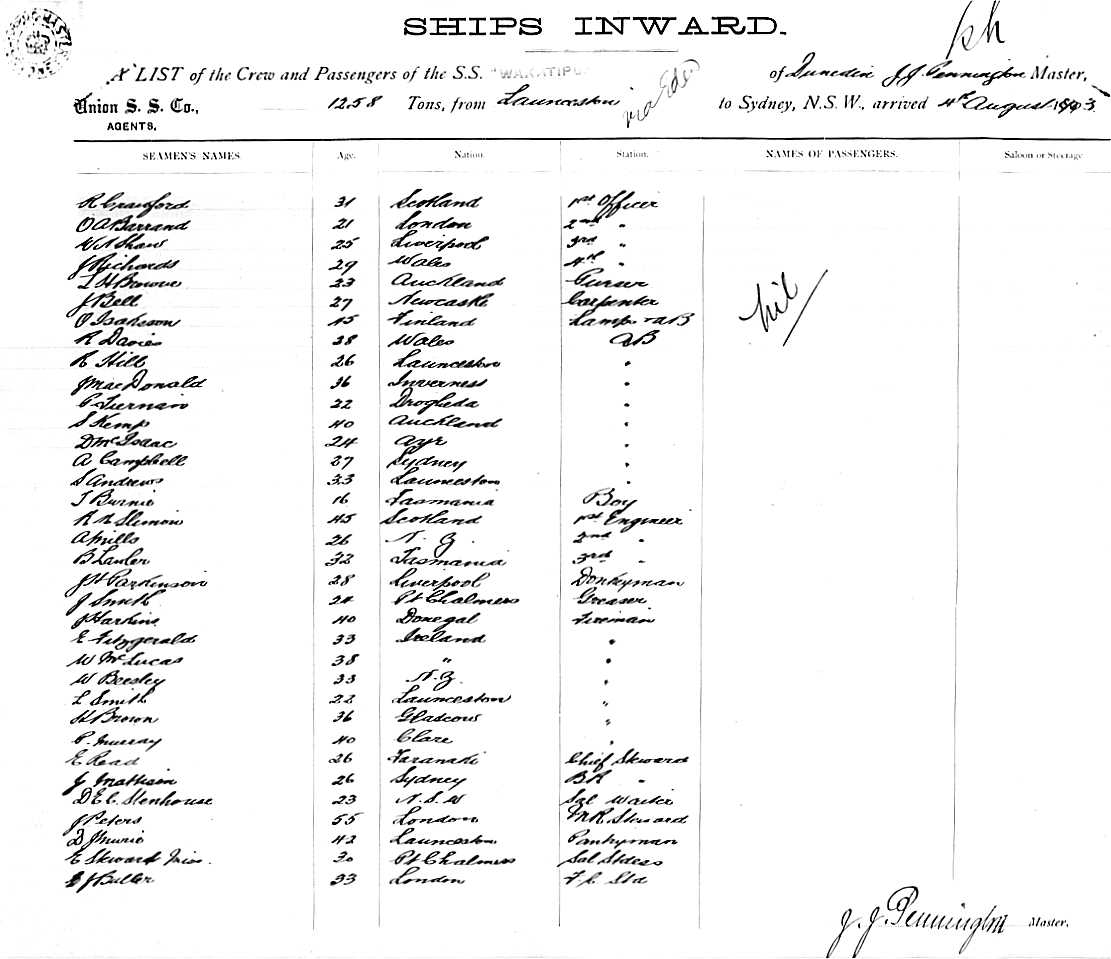 SHIPS INWARD.
A LIST of the Crew and Passengers of the S.S. "WAKATIPU" of Dunedin J. J. Pennington Master,
Union S. S. Co., 1258 Tons, from Launceston via Eden to Sydney, N.S.W., arrived 4th August 1903
AGENTS.
SEAMEN'S NAMES. Age. Nation. Station. NAMES OF PASSENGERS. Saloon or Steerage
R Crawford 31 Scotland 1st Officer
O A Barrand 21 London 2nd "
W A Shaw 25 Liverpool 3rd "
J Richards 29 Wales 4th "
L H Browne 23 Auckland Purser
J Bell 27 Newcastle Carpenter
nil
O Isaksson 45 Finland Lamps & AB
R Davies 38 Wales AB
R Hill 26 Launceston "
J MacDonald 36 Inverness "
P Tiernan 22 Drogheda "
S Kemp 40 Auckland "
D McIsaac 24 Ayr "
A Campbell 27 Sydney "
S Andrews 33 Launceston "
T Burnie 16 Tasmania Boy
R N Slimon 45 Scotland 1st Engineer
A Mills 26 N. Z. 2nd "
B Lawler 32 Tasmania 3rd "
J H Parkinson 28 Liverpool Donkyman
J Smith 24 Pt Chalmers Greaser
J Harkins 40 Donegal Fireman
E Fitzgerald 33 Ireland "
W McLucas 38 " "
W Beesley 33 N. Z. "
L Smith 22 Launceston "
H Brown 36 Glascow "
P. Murray 40 Clare "
E Read 26 Taranaki Chief Steward
J Mathison 26 Sydney BK "
D E C Stenhouse 23 N. S. W Sal Waiter
J Peters 55 London M R Steward
D J Murie 42 Launceston Pantryman
E Steward Miss. 30 Pt Chalmers Sal Stdess
E J Butler 33 London F. C. Std
J. J. Pennington Master.